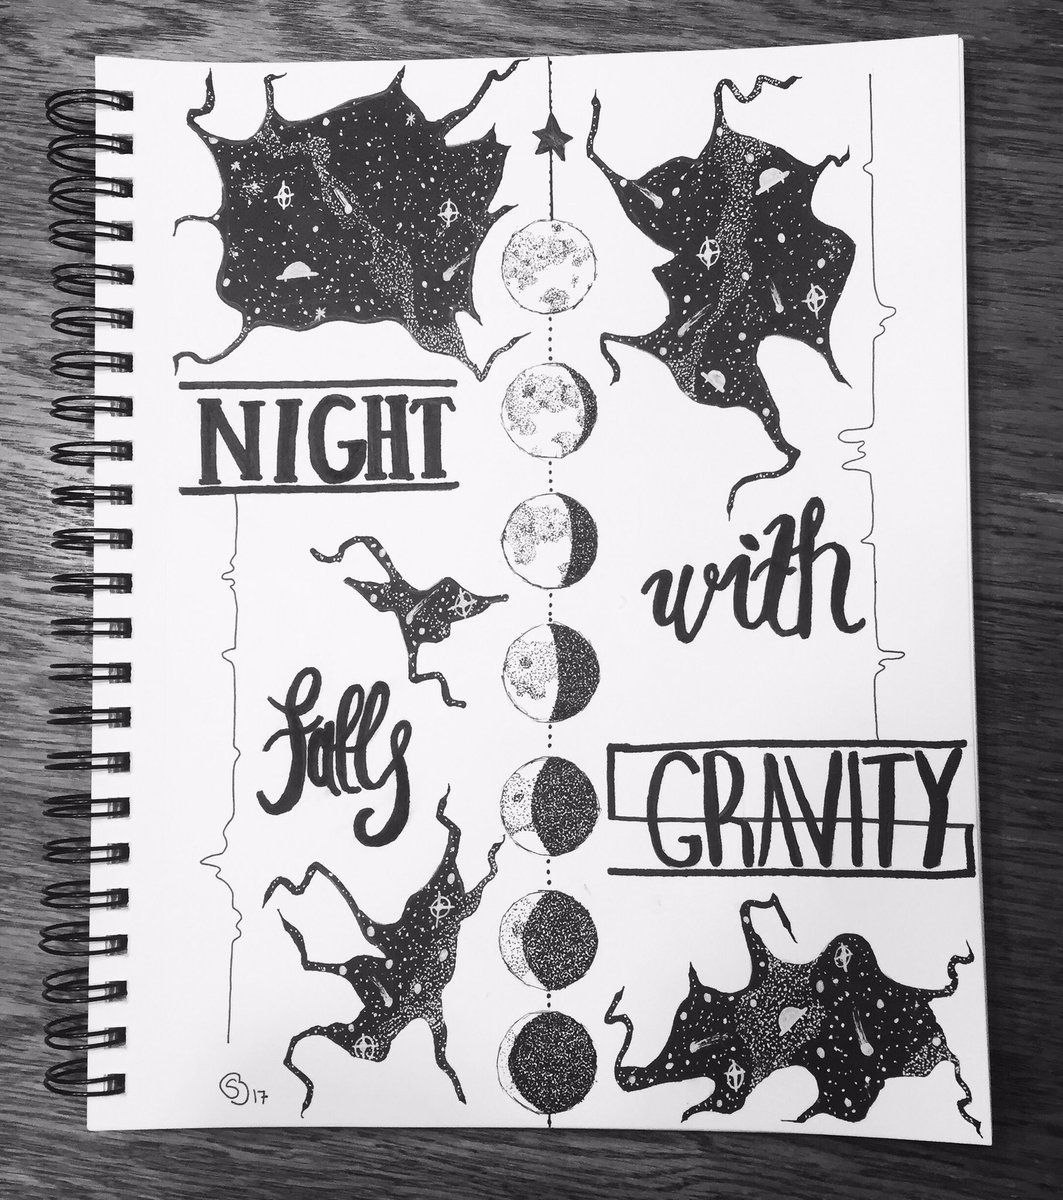 NIGHT
falls
with
GRAVITY
17